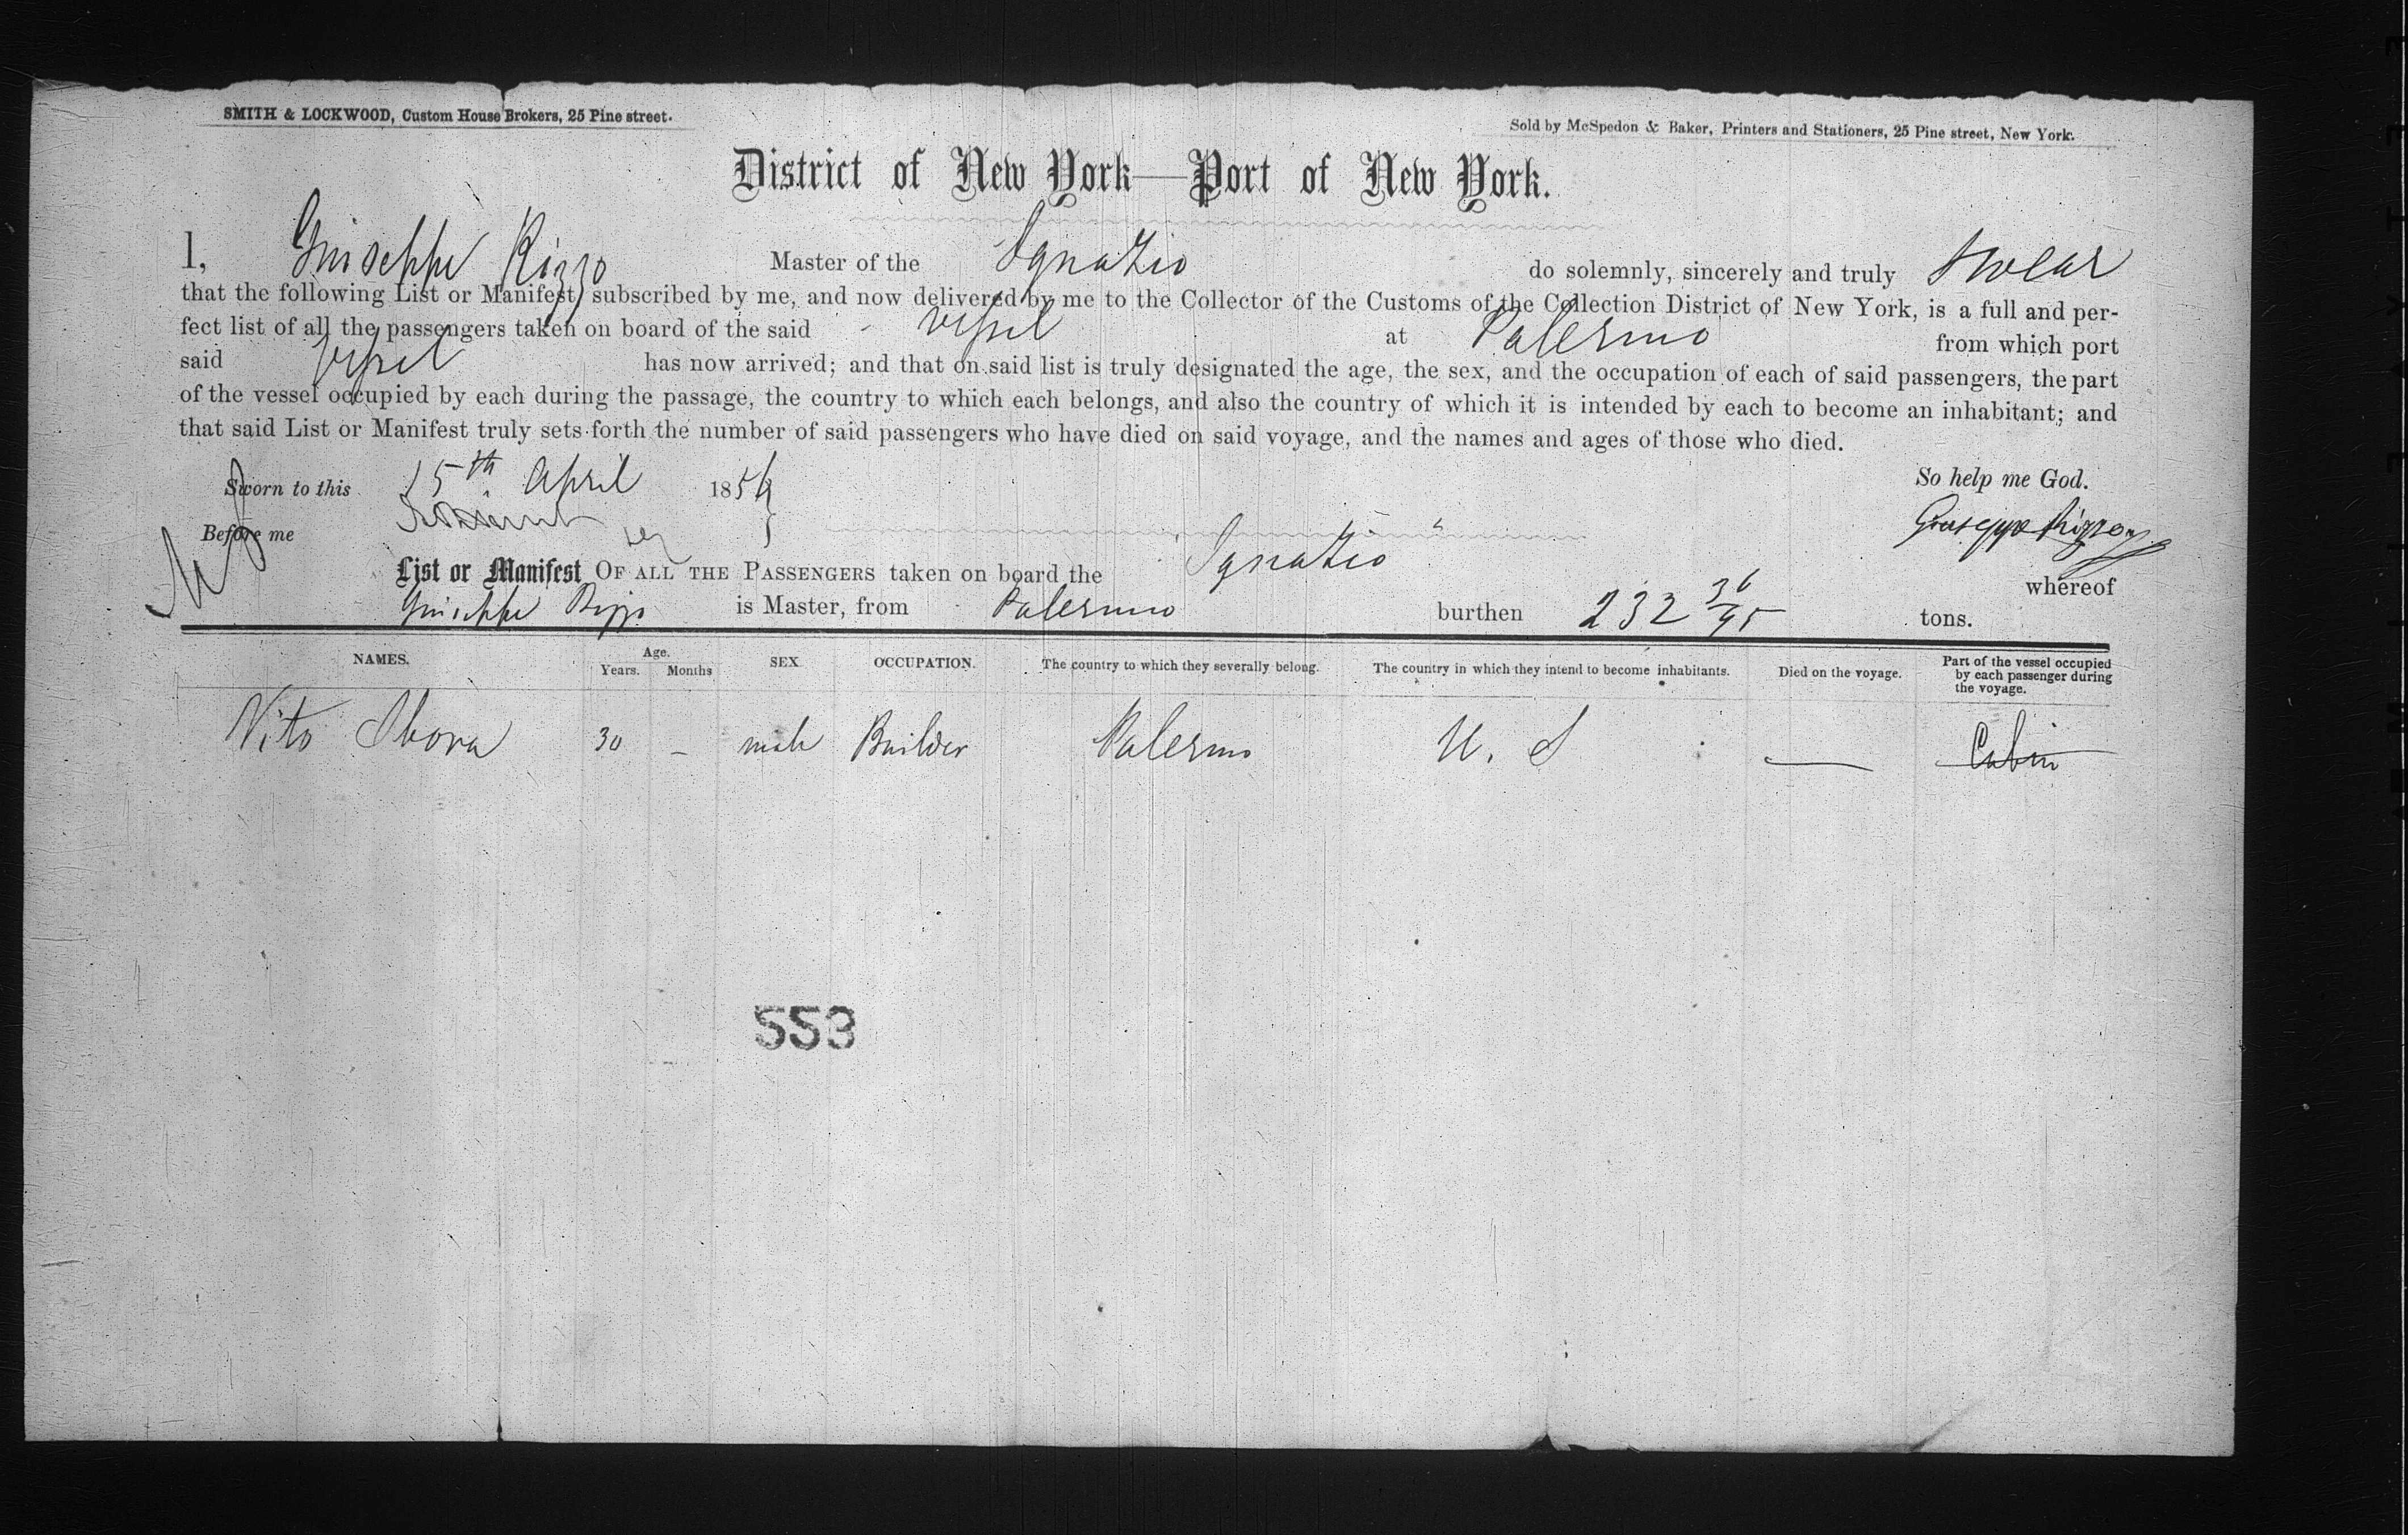 SMITH & LOCKWOOD, Custom House Brokers, 25 Pine street.
Sold by McSpedon & Baker, Printers and Stationers, 25 Pine street, New York.
District of New York—Port of New York.
I, Guiseppe Rizzo Master of the Ignatio do solemnly, sincerely and truly swear
that the following List or Manifest, subscribed by me, and now delivered by me to the Collector of the Customs of the Collection District of New York, is a full and per-
fect list of all the passengers taken on board of the said vessel at Palermo from which port
said vessel has now arrived; and that on said list is truly designated the age, the sex, and the occupation of each of said passengers, the part
of the vessel occupied by each during the passage, the country to which each belongs, and also the country of which it is intended by each to become an inhabitant; and
that said List or Manifest truly sets forth the number of said passengers who have died on said voyage, and the names and ages of those who died.
Sworn to this 15th April 185 So help me God.
Before me Giuseppe Rizzo
List or Manifest OF ALL THE PASSENGERS taken on board the Ignatio whereof
Guiseppe Rizzo is Master, from Palermo burthen 232 36/95 tons.
NAMES. Age. Years. Months SEX. OCCUPATION. The country to which they severally belong. The country in which they intend to become inhabitants. Died on the voyage. Part of the vessel occupied by each passenger during the voyage.
Vito 30 – male Builder Palermo U. S — Cabin
553